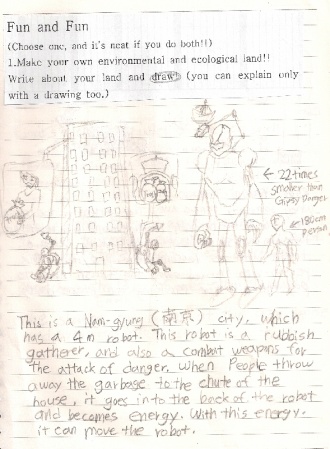 Fun and Fun
(Choose one, and it's neat if you do both!!)
1.Make your own environmental and ecological land!!
Write about your land and draw! (you can explain only
with a drawing too.)
← 22 times
smaller than
Gipsy Danger
← 180cm
person
This is a Nam-gyung (南京) city, which
has a 4m robot. This robot is a rubbish
gatherer, and also a combat weapons for
the attack of danger. When People throw
away the garbage to the chute of the
house, it goes into the back of the robot
and becomes energy. With this energy.
it can move the robot.